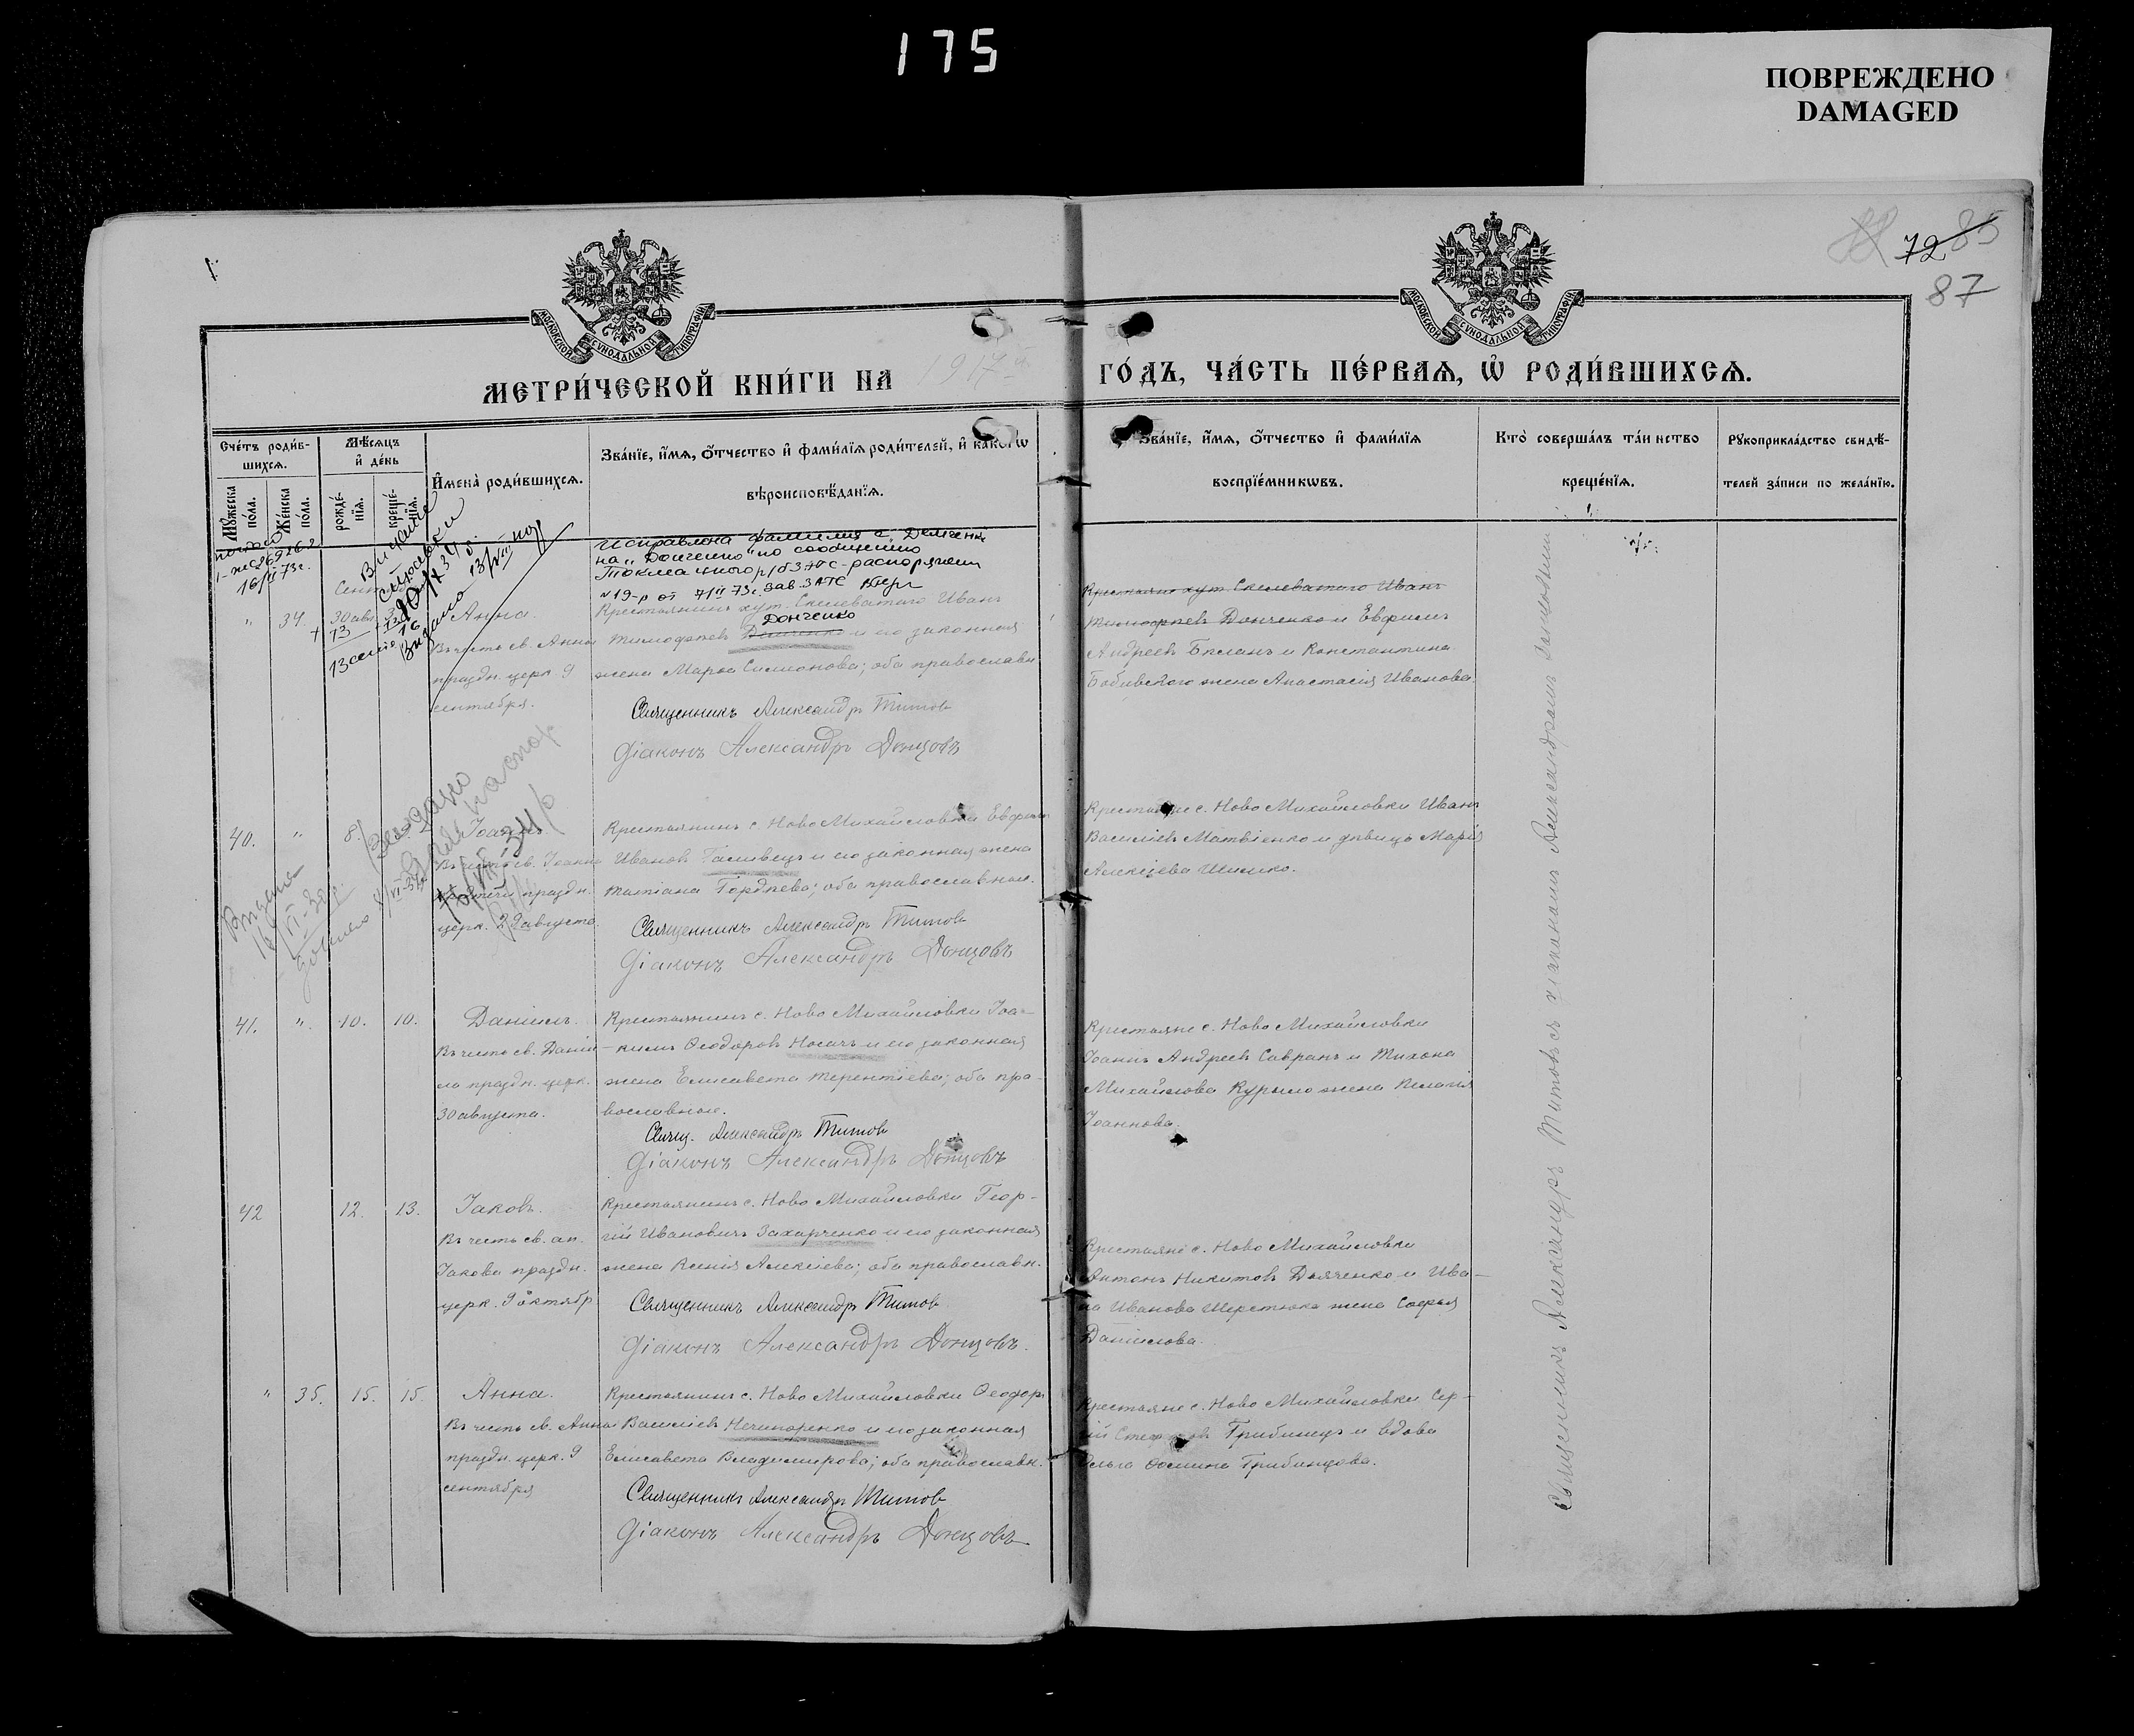 175
ПОВРЕЖДЕНО
DAMAGED
72 85
87
МОСКОВСКОЙ СУНОДАЛЬНОЙ ТИПОГРАФІИ
МОСКОВСКОЙ СУНОДАЛЬНОЙ ТИПОГРАФІИ
МЕТРИ́ЧЕСКОЙ КНИ́ГИ НА 1917 ГО́ДЪ, ЧА́СТЬ ПЕ́РВАѦ, Ѡ҆ РОДИ́ВШИХСѦ.
Сче́тъ роди́в-
шихсѧ.
Мꙋ́жеска по́ла.
Же́нска по́ла.
Мѣ́сѧцъ
и҆ де́нь
рожде́-
нїѧ.
креще́-
нїѧ.
И҆мена̀ роди́вшихсѧ.
Зва́нїе, и҆́мѧ, ѻ҆́тчество и҆ фами́лїѧ роди́телей, и҆ како́гѡ
вѣроисповѣ́данїѧ.
Зва́нїе, и҆́мѧ, ѻ҆́тчество и҆ фами́лїѧ
воспрїе́мникѡвъ.
Кто̀ соверша́лъ таи нство
креще́нїѧ.
Рꙋкоприкла́дство свидѣ́-
телей за́писи по жела́нїю.
Исправлена фамилия с „Демченк
на „Донченко" по сообщению
Токмакского р/б ЗАГС - распоряжен
№ 19-р от 7/II 73 г. Зав ЗАГС
16/II 73 г.
" 34. 30 авг. Анна.
13 сент
Въ честь св. Анны
праздн. церк. 9
сентября.
Крестьянинъ хут. Скелеватаго Иванъ
Донченко
Тимофѣевъ Демченко и его законная
жена Марѳа Симеонова; оба православн
Священникъ Александръ Титовъ
Діаконъ Александръ Донцовъ
Крестьяне хут. Скелеватаго Иванъ
Тимофѣевъ Донченко и Евфимъ
Андреевъ Бѣланъ и Константина
жена Анастасія Иванова.
40. " 8. Іоаннъ
Въ честь св. Іоанна
праздн.
церк. 29 августа.
Крестьянинъ с. Ново Михайловки Евфимъ
Ивановъ Галивецъ и его законная жена
Татіана Гордѣева; оба православные.
Священникъ Александръ Титовъ
Діаконъ Александръ Донцовъ
Крестьяне с. Ново Михайловки Иванъ
Василіевъ Матвіенко и дѣвица Марія
Алексіева Шишко.
41. " 10. 10. Даніилъ.
Въ честь св. Даніи-
ла праздн. церк.
30 августа.
Крестьянинъ с. Ново Михайловки Іоа-
кимъ Ѳеодоровъ Носачъ и его законная
жена Елисавета Терентіева; оба пра-
вославные.
Свящ. Александръ Титовъ
Діаконъ Александръ Донцовъ
Крестьяне с. Ново Михайловки
Іоаннъ Андреевъ Савранъ и Тихона
Михайлова Курыло жена Пелагія
Іоаннова.
42 12. 13. Іаковъ.
Въ честь св. ап.
Іакова праздн.
церк. 9 октябр
Крестьянинъ с. Ново Михайловки Геор-
гій Ивановичъ Захарченко и его законная
жена Ксенія Алексіева; оба православн.
Священникъ Александръ Титовъ
Діаконъ Александръ Донцовъ.
Крестьяне с. Ново Михайловки
Антонъ Никитовъ Дьяченко и Ива-
на Иванова Шерстюка жена Софья
Даниилова.
" 35. 15. 15. Анна.
Въ честь св. Анны
праздн. церк. 9
сентября
Крестьянинъ с. Ново Михайловки Ѳеодоръ
Василіевъ Нечипоренко и его законная
Елисавета Владимирова; оба православн.
Священникъ Александръ Титовъ
Діаконъ Александръ Донцовъ
Крестьяне с. Ново Михайловки Сер-
гій Грибинецъ и вдова
Ольга Ѳомина Грибинцова.
Священникъ Александръ Титовъ съ діакономъ Александромъ Донцовымъ